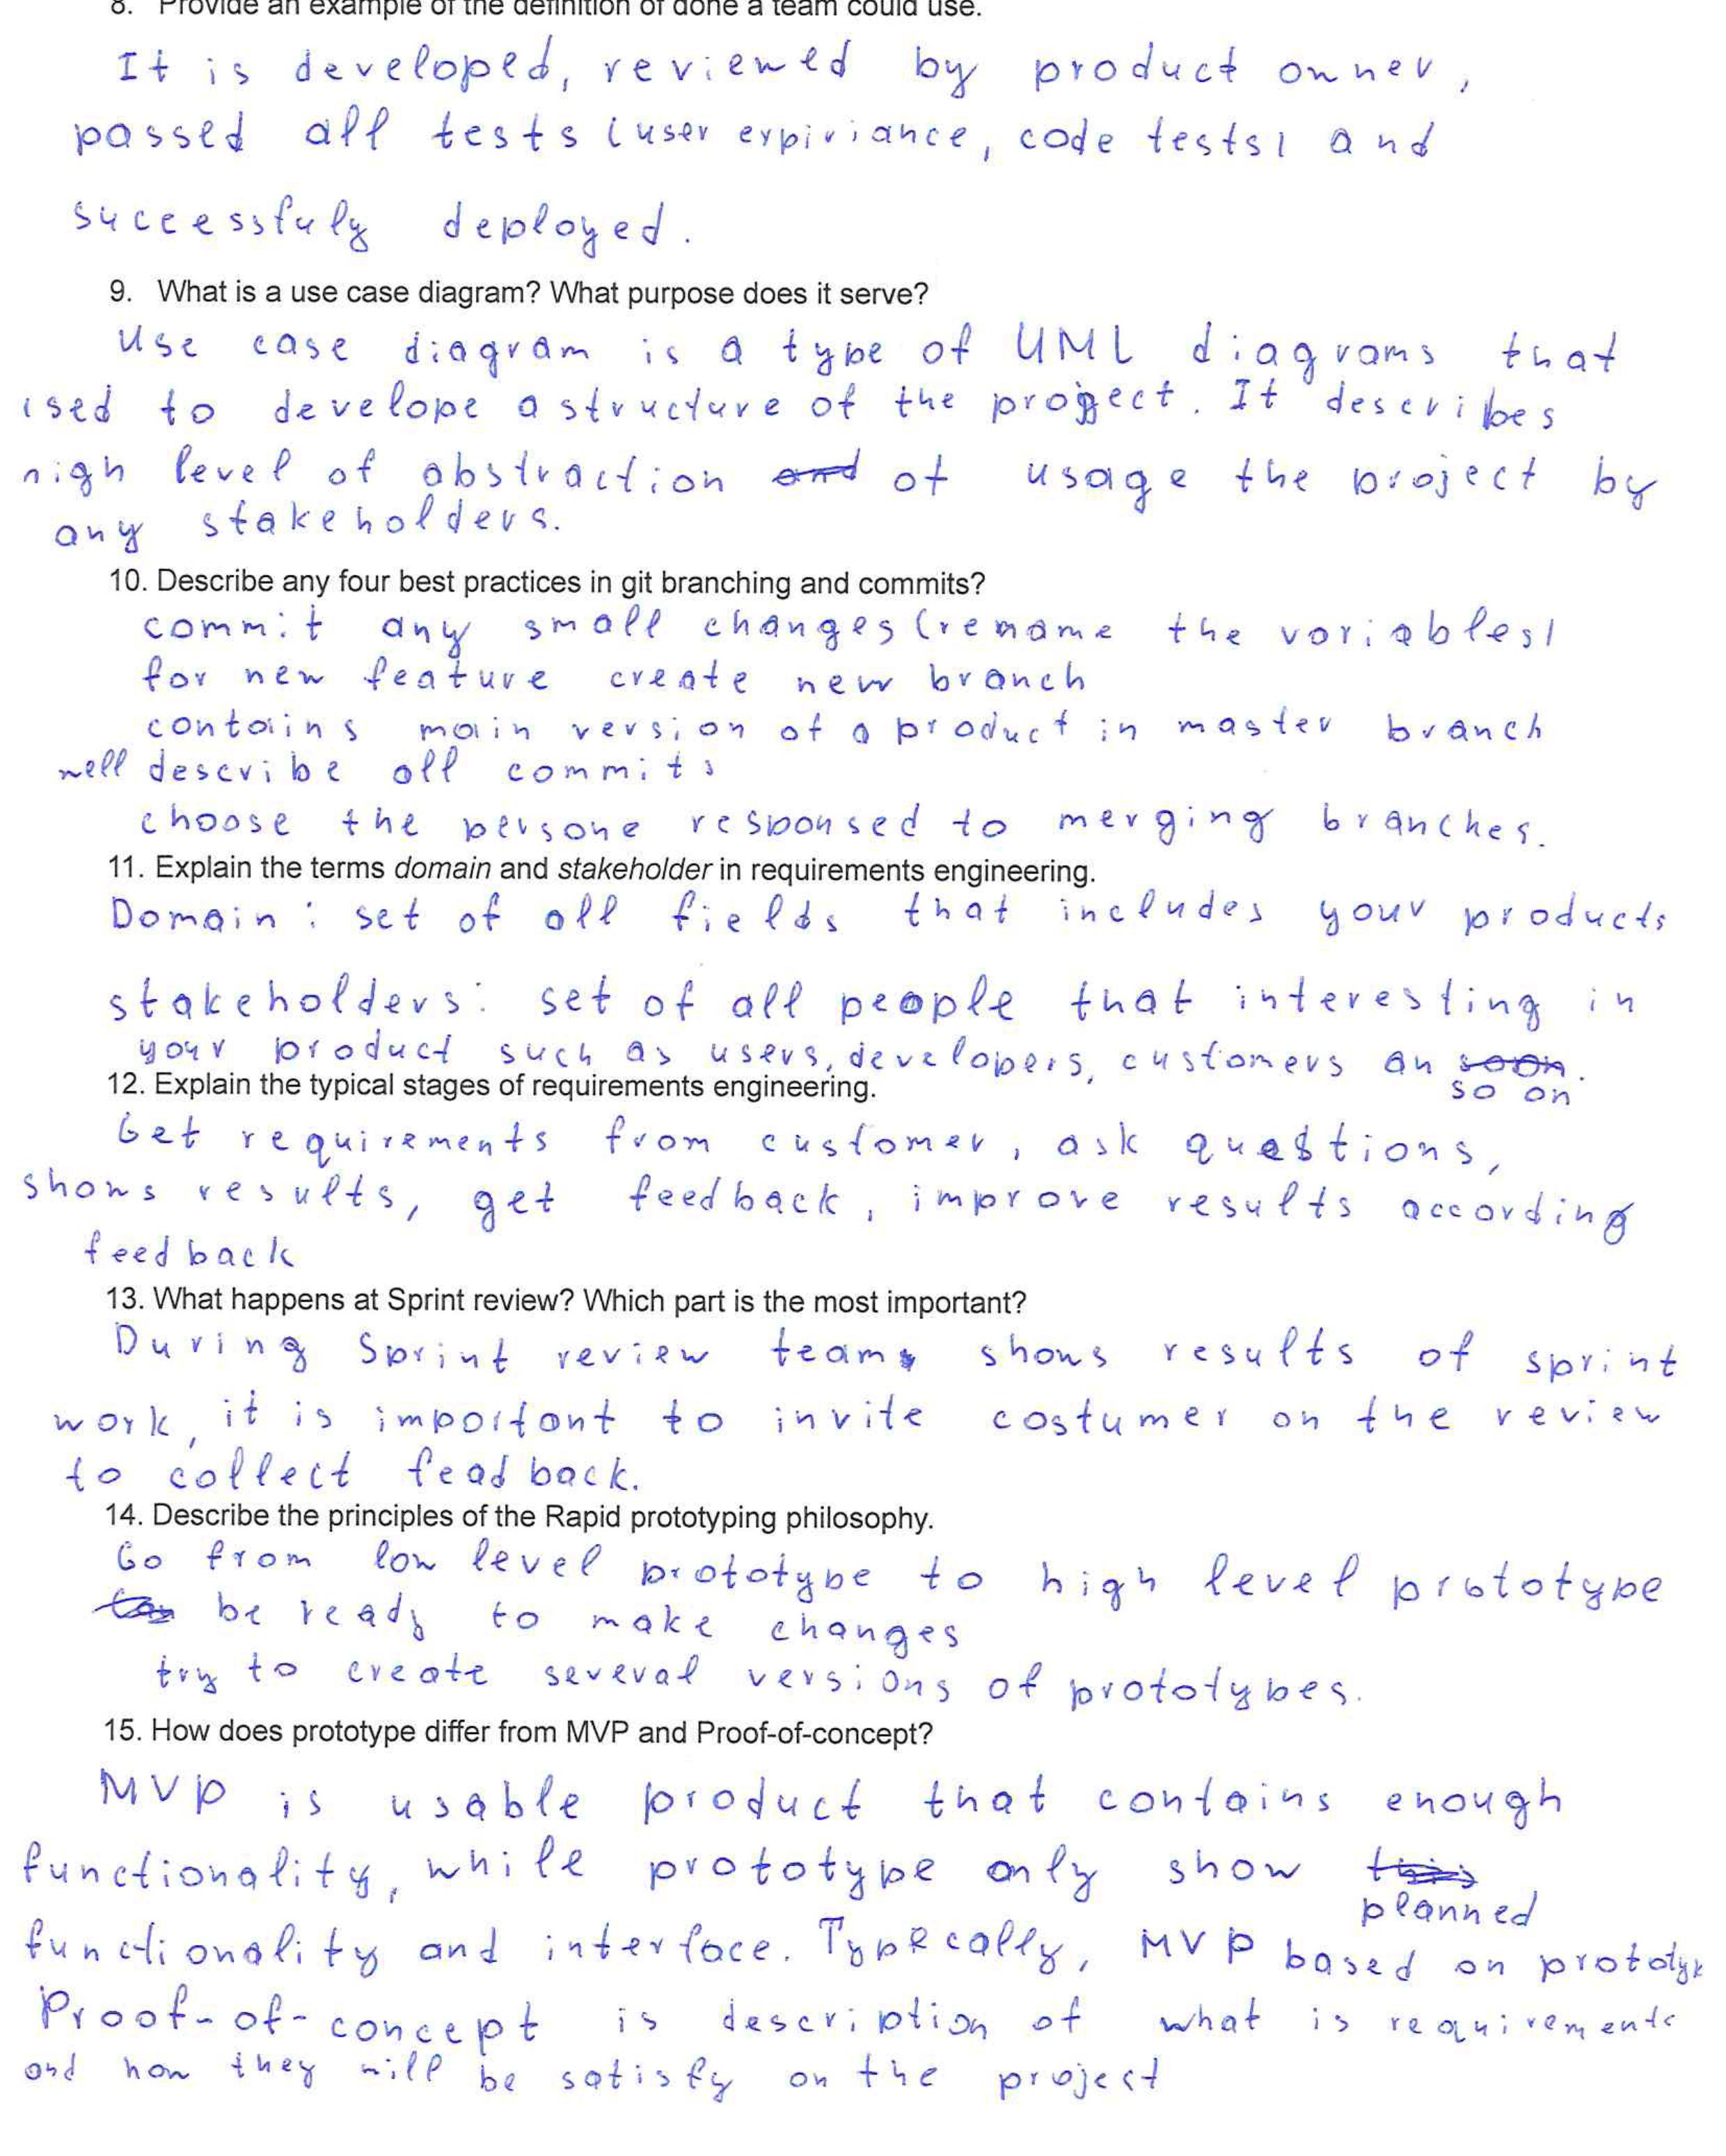 8. Provide an example of the definition of done a team could use.
It is developed, reviewed by product owner,
passed all tests (user expiriance, code tests) and
succeessfuly deployed.
9. What is a use case diagram? What purpose does it serve?
Use case diagram is a type of UML diagrams that
used to develope a structure of the project. It describes
high level of abstraction and of usage the project by
any stakeholders.
10. Describe any four best practices in git branching and commits?
commit any small changes (rename the variables)
for new feature create new branch
contains main version of a product in master branch
well describe all commits
choose the persone responsed to merging branches.
11. Explain the terms domain and stakeholder in requirements engineering.
Domain : set of all fields that includes your products
stakeholders: set of all people that interesting in
your product such as users, developers, customers an soon.
so on
12. Explain the typical stages of requirements engineering.
Get requirements from customer, ask questions,
shows results, get feedback, improve results according
feedback
13. What happens at Sprint review? Which part is the most important?
During Sprint review team shows results of sprint
work, it is important to invite costumer on the review
to collect feadback.
14. Describe the principles of the Rapid prototyping philosophy.
Go from low level prototype to high level prototype
be ready to make changes
try to create several versions of prototypes.
15. How does prototype differ from MVP and Proof-of-concept?
MVP is usable product that contains enough
functionality, while prototype only show this
planned
functionality and interface. Typecally, MVP based on prototype
Proof-of-concept is description of what is requirements
and how they will be satisfy on the project